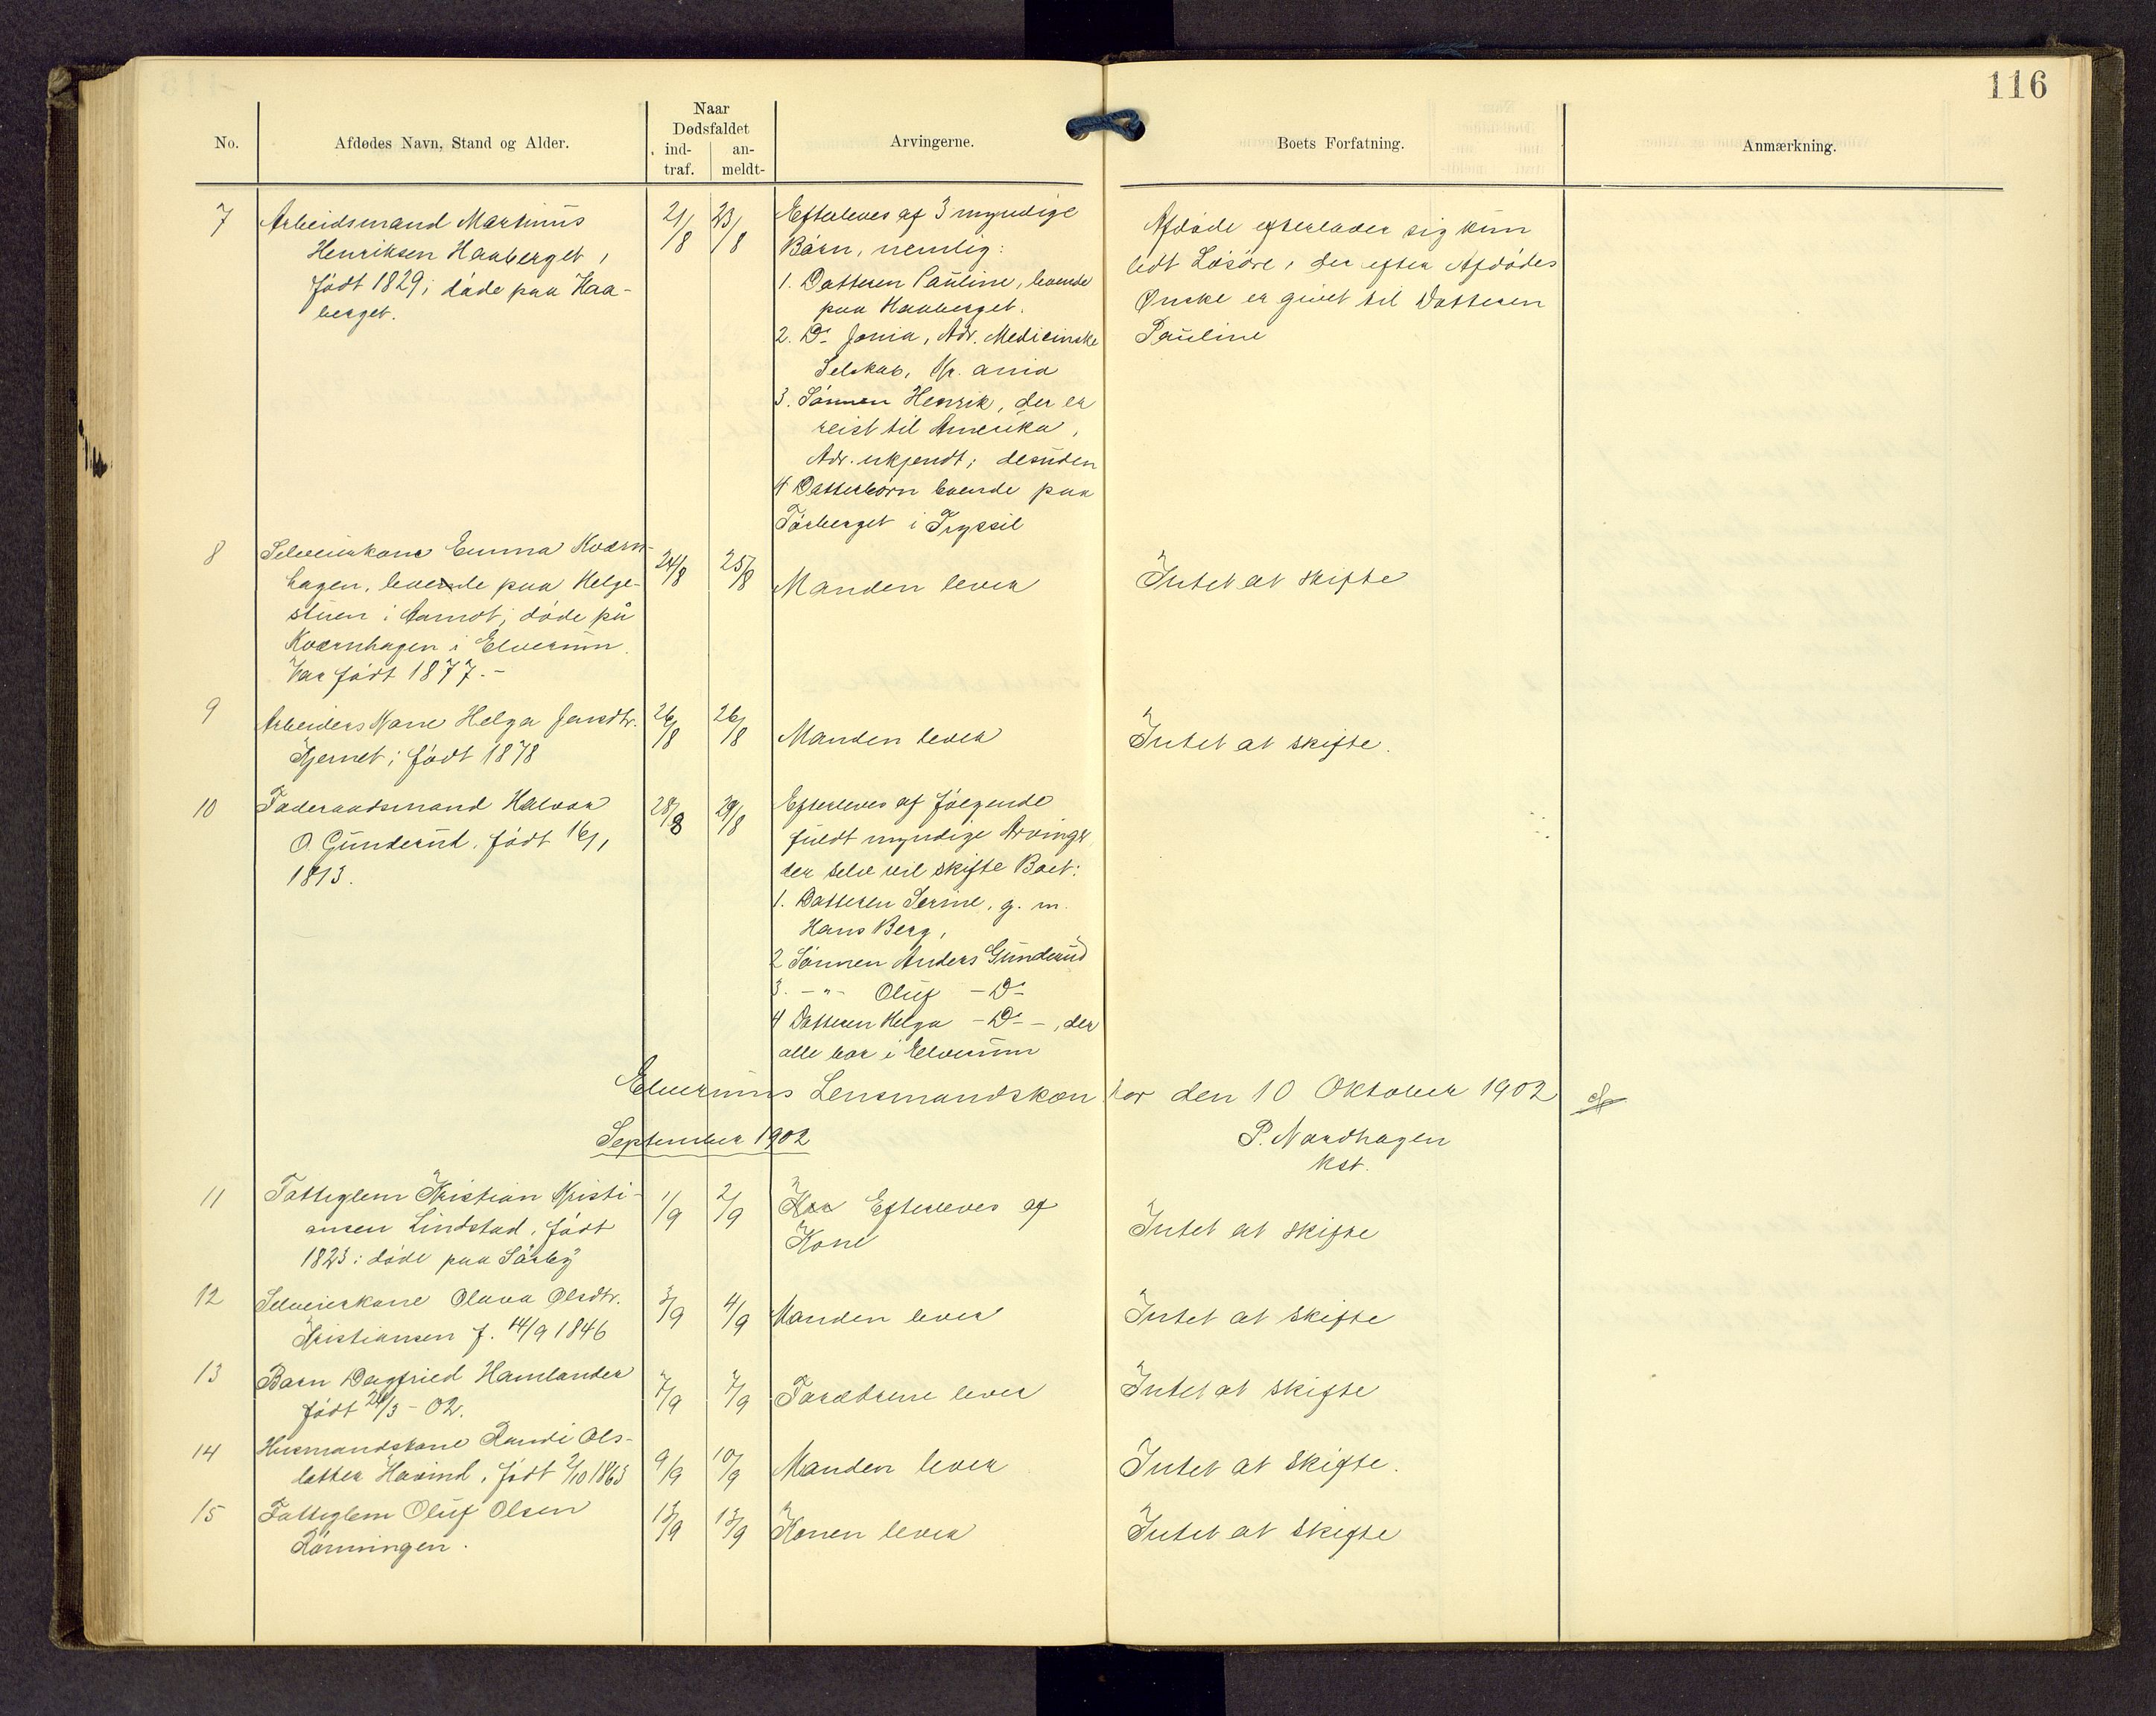 116
No.
Afdødes Navn, Stand og Alder.
Naar
Dødsfaldet
ind-
traf.
an-
meldt-
Arvingerne.
Boets Forfatning.
Anmærkning.
7
Arbeidsmand Martinus
Henriksen Haaberget,
født 1829; døde paa Haa-
berget.
21/8
23/8
Efterleves af 3 myndige
Børn, nemlig:
1. Datteren Pauline, boende
paa Haaberget.
2. Do Jonia, Adr. Medicinske
Selskab, Kr. ania
3. Sønnen Henrik, der er
reist til Amerika,
Adr. ukjendt; desuden
4 Datterbørn boende paa
Tørberget i Trysil
Afdøde efterlader sig kun
lidt Løsøre, der efter Afdødes
Ønske er givet til Datteren
Pauline
8
Selveierkone Emma Kværn-
hagen, boende paa Helge-
stuen i Aamot; døde på
Kværnhagen i Elverum.
Var født 1877.-
24/8
25/8
Manden lever
Intet at skifte
9
Arbeiders Kone Helga Jensdtr.
Kjernet; født 1878
26/8
26/8
Manden lever
Intet at skifte.
10
Føderaadsmand Halvor
O. Gunderud, født 16/1
1813.
28/8
29/8
Efterleves af følgende
fuldt myndige Arvinger,
der selv vil skifte Boet:
1. Datteren Serine, g. m.
Hans Berg,
2 Sønnen Anders Gunderud
3. -"- Oluf -Do-
4 Datteren Helga -Do-, der
alle bor i Elverum
Elverums Lensmandskontor den 10 Oktober 1902
P. Nordhagen
kst.
September 1902
11
Fattiglem Kristian Kristi-
ansen Lindstad, født
1823; døde paa Sørby
1/9
2/9
Efterleves af
Kone
Intet at skifte
12
Selveierkone Olava Olsdtr.
Kristiansen f. 14/9 1846
3/9
4/9
Manden lever
Intet at skifte
13
Barn Dagfried Hamlander
født 24/3 - 02.
7/9
7/9
Forældrene lever
Intet at skifte
14
Husmandskone Randi Ols-
datter Havind, født 2/10 1863
9/9
10/9
Manden lever
Intet at skifte.
15
Fattiglem Oluf Olsen
Rønningen.
13/9
13/9
Konen lever
Intet at skifte